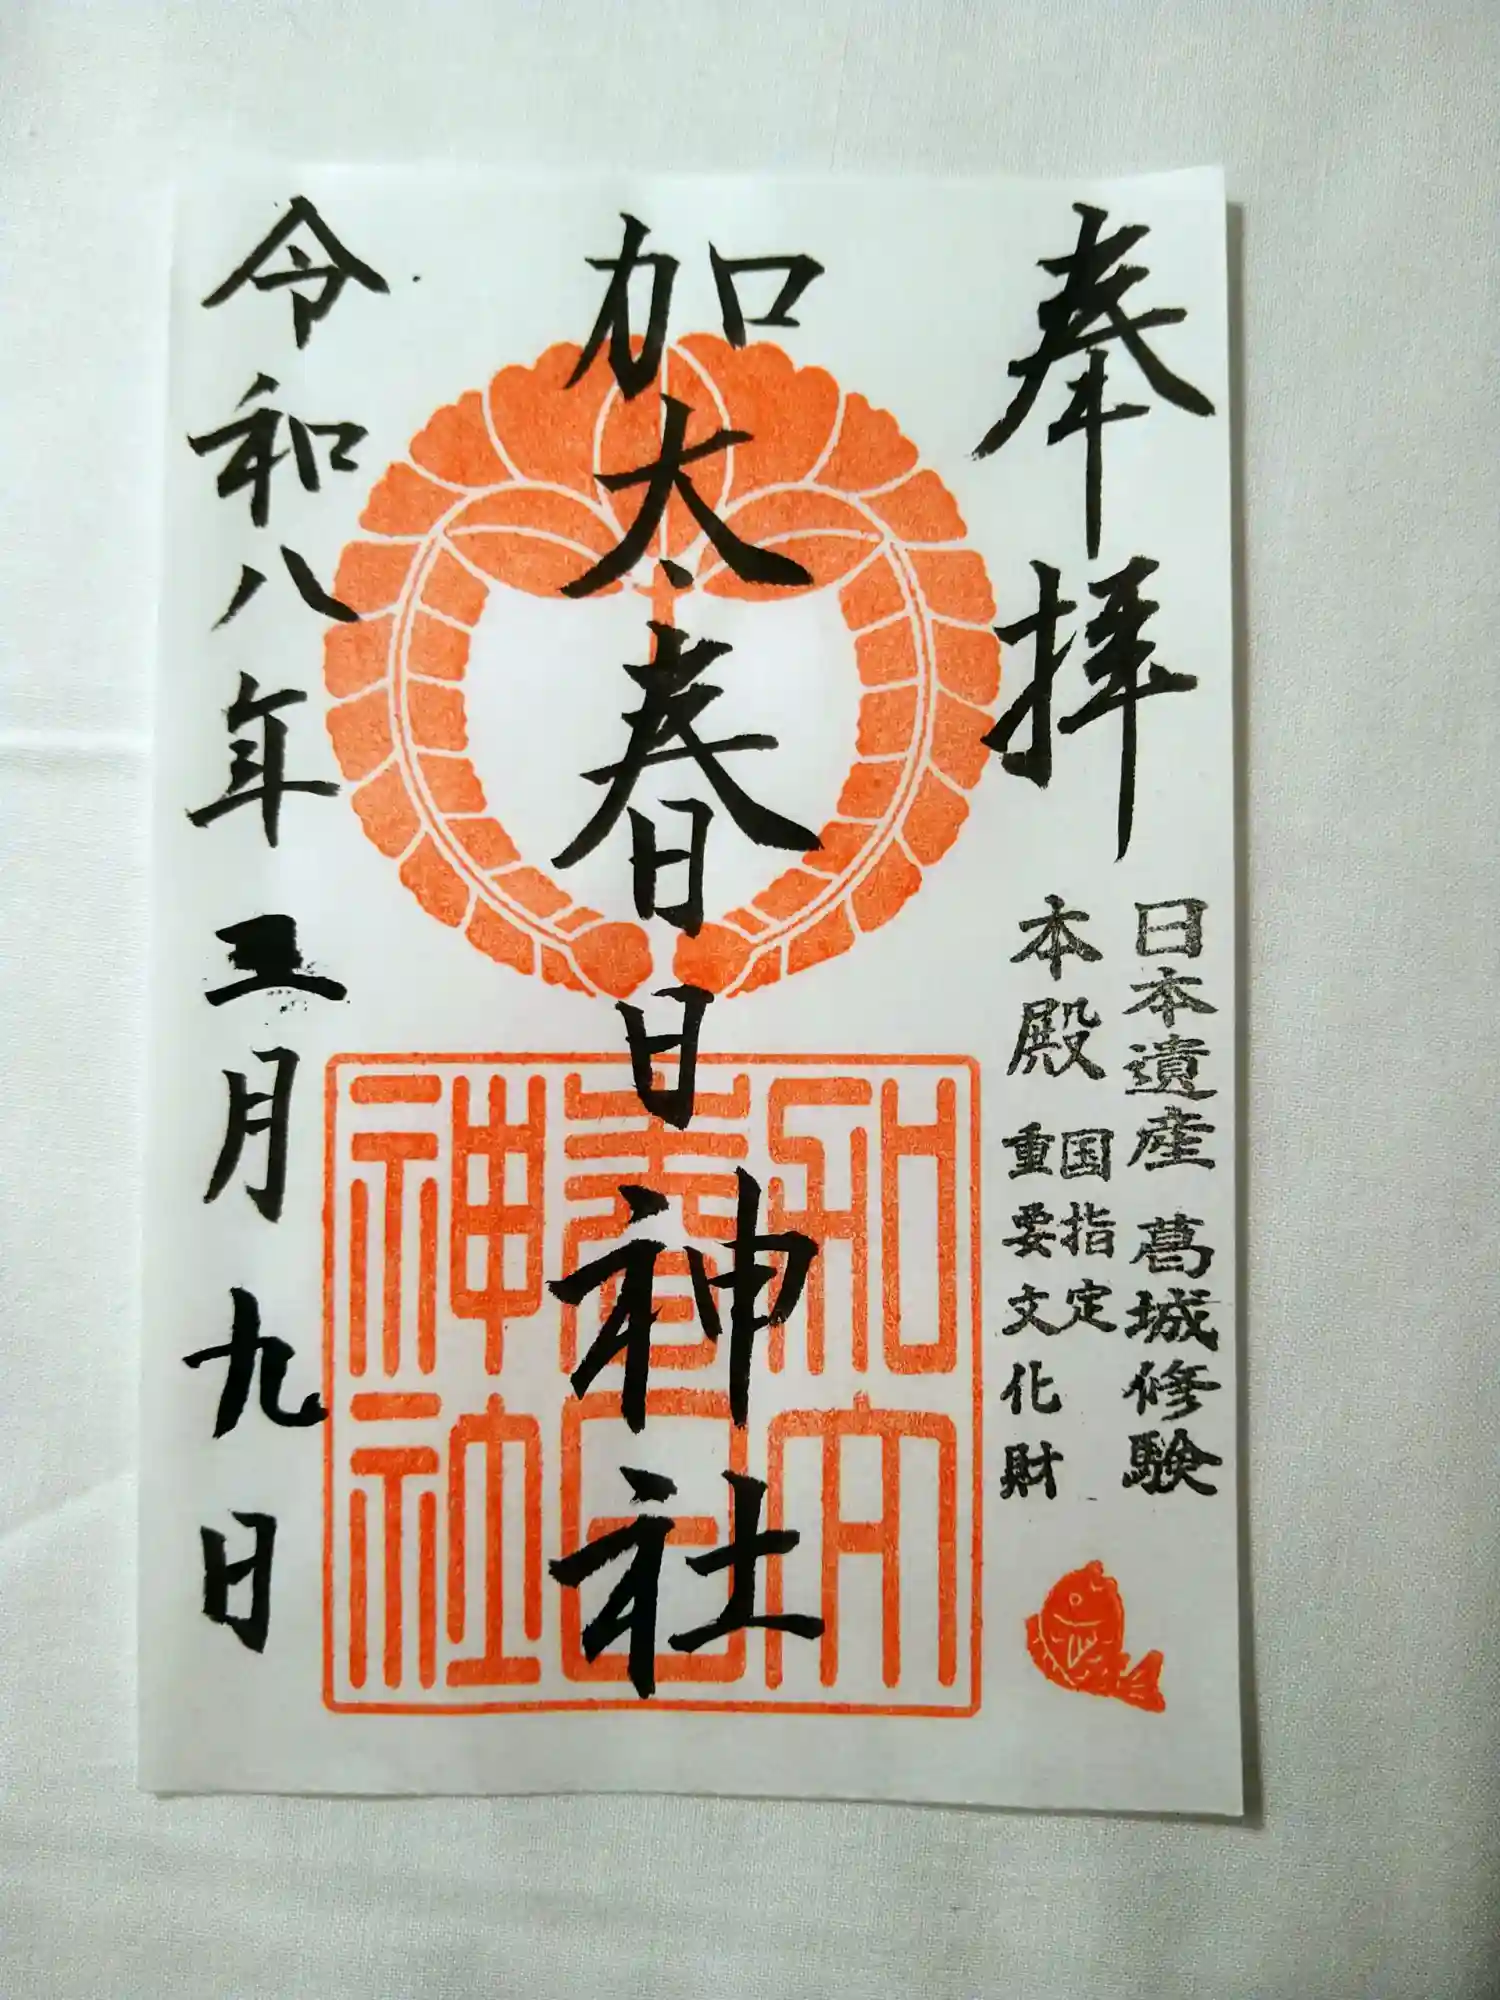 奉拝
日本遺産 葛城修験
本殿 国指定
重要文化財
加太春日神社
令和八年三月九日
春日
神社